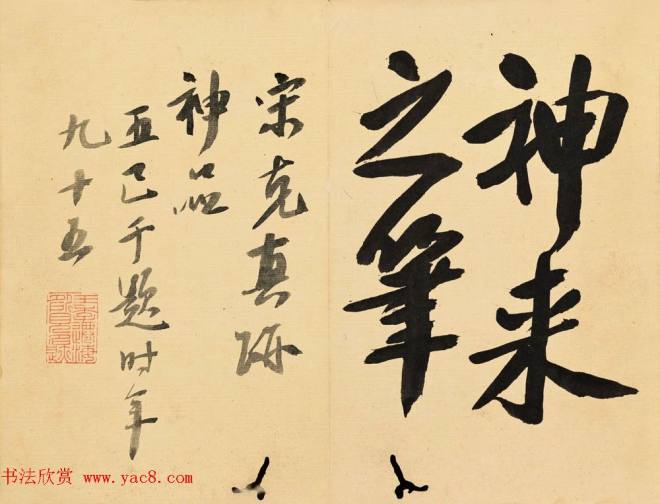 神来
之筆
宋克真跡
神品
王己千题时年
九十五
书法欣赏 www.yac8.com